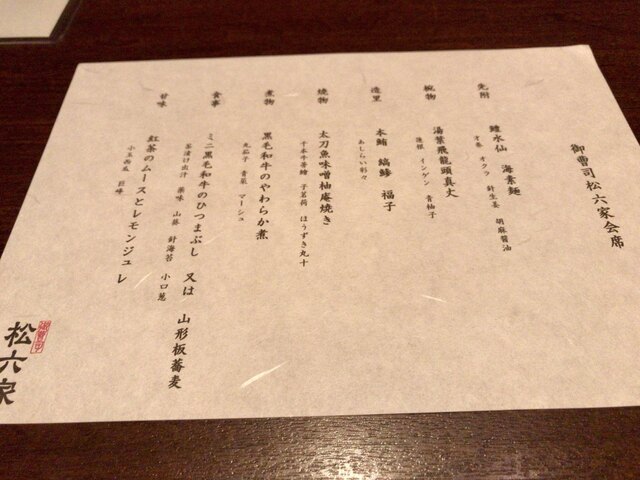 御曹司松六家会席
先附
鱧水仙 海素麺
才巻 オクラ 針生姜 胡麻醤油
椀物
湯葉飛龍頭真丈
蓮根 インゲン 青柚子
造里
本鮪 縞鯵 福子
あしらい彩々
焼物
太刀魚味噌柚庵焼き
千本牛蒡 子茗荷 ほうずき丸十
煮物
黒毛和牛のやわらか煮
丸茄子 青菜 マーシュ
食事
ミニ黒毛和牛のひつまぶし 又は 山形板蕎麦
茶漬け出汁 薬味 山葵 針海苔 小口葱
甘味
紅茶のムースとレモンジュレ
小玉西瓜 巨峰
御曹子
松六家